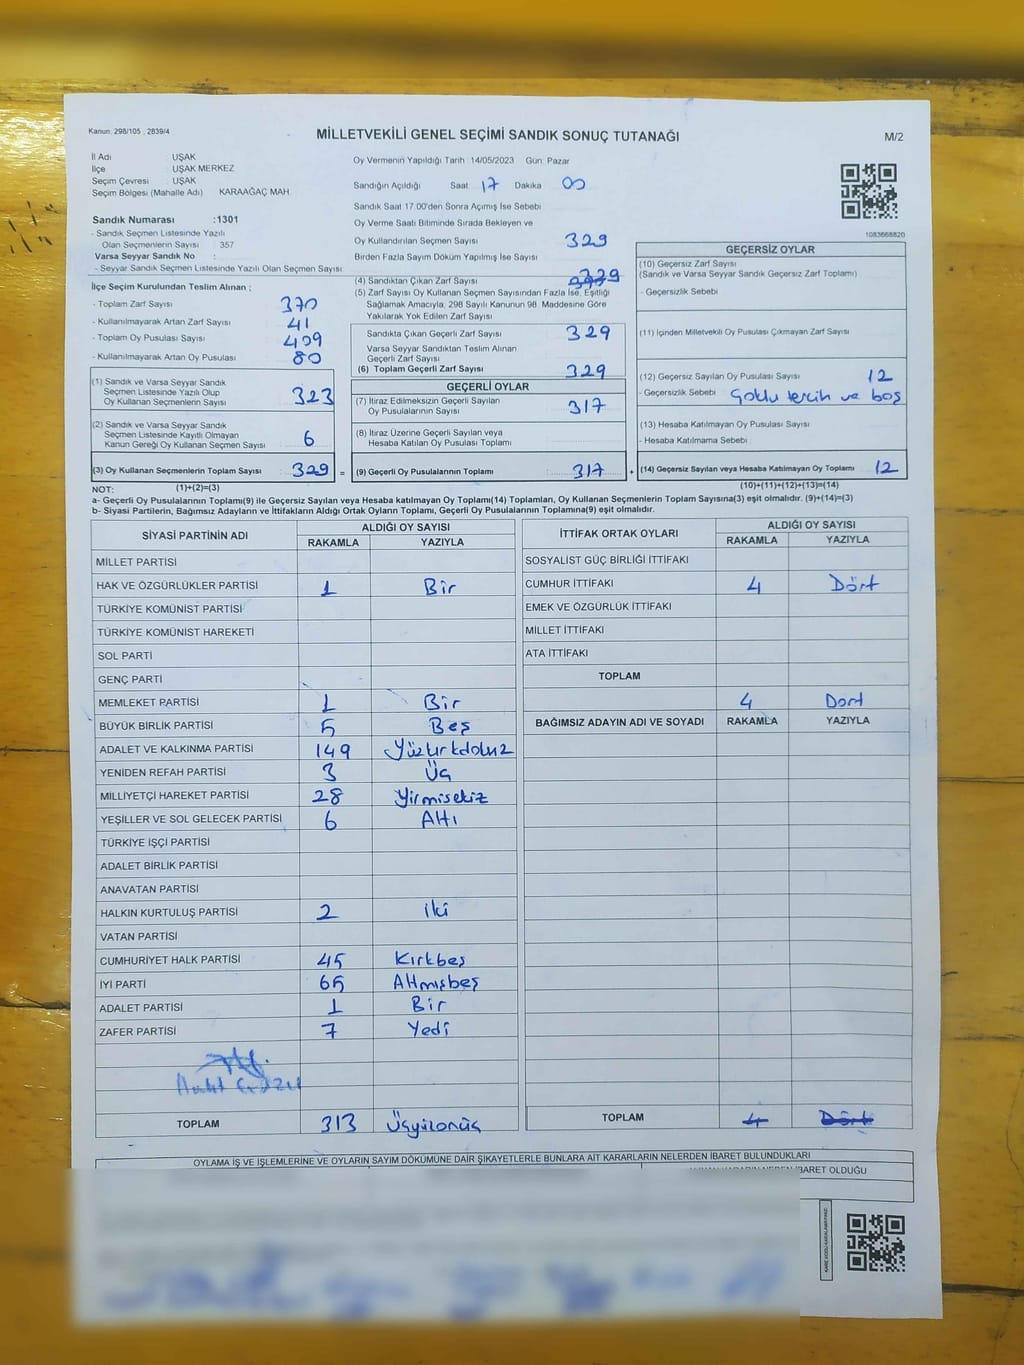 Kanun, 298/105 , 2839/4
MİLLETVEKİLİ GENEL SEÇİMİ SANDIK SONUÇ TUTANAĞI
M/2
İl Adı UŞAK
İlçe UŞAK MERKEZ
Seçim Çevresi UŞAK
Seçim Bölgesi (Mahalle Adı) KARAAĞAÇ MAH.
Sandık Numarası :1301
- Sandık Seçmen Listesinde Yazılı
Olan Seçmenlerin Sayısı 357
Varsa Seyyar Sandık No :
- Seyyar Sandık Seçmen Listesinde Yazılı Olan Seçmen Sayısı:
İlçe Seçim Kurulundan Teslim Alınan ;
- Toplam Zarf Sayısı 370
- Kullanılmayarak Artan Zarf Sayısı 41
- Toplam Oy Pusulası Sayısı 409
- Kullanılmayarak Artan Oy Pusulası 80
(1) Sandık ve Varsa Seyyar Sandık
Seçmen Listesinde Yazılı Olup
Oy Kullanan Seçmenlerin Sayısı 323
(2) Sandık ve Varsa Seyyar Sandık
Seçmen Listesinde Kayıtlı Olmayan
Kanun Gereği Oy Kullanan Seçmen Sayısı 6
(3) Oy Kullanan Seçmenlerin Toplam Sayısı 329 =
Oy Vermenin Yapıldığı Tarih 14/05/2023 Gün: Pazar
Sandığın Açıldığı Saat 17 Dakika 00
Sandık Saat 17.00'den Sonra Açımış İse Sebebi
Oy Verme Saati Bitiminde Sırada Bekleyen ve
Oy Kullandırılan Seçmen Sayısı 329
Birden Fazla Sayım Döküm Yapılmış İse Sayısı
(4) Sandıktan Çıkan Zarf Sayısı 329
(5) Zarf Sayısı Oy Kullanan Seçmen Sayısından Fazla İse, Eşitliği
Sağlamak Amacıyla, 298 Sayılı Kanunun 98. Maddesine Göre
Yakılarak Yok Edilen Zarf Sayısı
Sandıkta Çıkan Geçerli Zarf Sayısı 329
Varsa Seyyar Sandıktan Teslim Alınan
Geçerli Zarf Sayısı
(6) Toplam Geçerli Zarf Sayısı 329
GEÇERLİ OYLAR
(7) İtiraz Edilmeksizin Geçerli Sayılan
Oy Pusulalarının Sayısı 317
(8) İtiraz Üzerine Geçerli Sayılan veya
Hesaba Katılan Oy Pusulası Toplamı
(9) Geçerli Oy Pusulalarının Toplamı 317 +
1083668820
GEÇERSİZ OYLAR
(10) Geçersiz Zarf Sayısı
(Sandık ve Varsa Seyyar Sandık Geçersiz Zarf Toplamı)
- Geçersizlik Sebebi
(11) İçinden Milletvekili Oy Pusulası Çıkmayan Zarf Sayısı
(12) Geçersiz Sayılan Oy Pusulası Sayısı 12
- Geçersizlik Sebebi Çoklu tercih ve boş
(13) Hesaba Katılmayan Oy Pusulası Sayısı
- Hesaba Katılmama Sebebi
(14) Geçersiz Sayılan veya Hesaba Katılmayan Oy Toplamı 12
NOT: (1)+(2)=(3) (10)+(11)+(12)+(13)=(14)
a- Geçerli Oy Pusulalarının Toplamı(9) ile Geçersiz Sayılan veya Hesaba katılmayan Oy Toplamı(14) Toplamları, Oy Kullanan Seçmenlerin Toplam Sayısına(3) eşit olmalıdır. (9)+(14)=(3)
b- Siyasi Partilerin, Bağımsız Adayların ve İttifakların Aldığı Ortak Oyların Toplamı, Geçerli Oy Pusulalarının Toplamına(9) eşit olmalıdır.
SİYASİ PARTİNİN ADI ALDIĞI OY SAYISI
RAKAMLA YAZIYLA
MİLLET PARTİSİ
HAK VE ÖZGÜRLÜKLER PARTİSİ 1 Bir
TÜRKİYE KOMÜNİST PARTİSİ
TÜRKİYE KOMÜNİST HAREKETİ
SOL PARTİ
GENÇ PARTİ
MEMLEKET PARTİSİ 1 Bir
BÜYÜK BİRLİK PARTİSİ 5 Beş
ADALET VE KALKINMA PARTİSİ 149 Yüzkırkdokuz
YENİDEN REFAH PARTİSİ 3 Üç
MİLLİYETÇİ HAREKET PARTİSİ 28 Yirmisekiz
YEŞİLLER VE SOL GELECEK PARTİSİ 6 Altı
TÜRKİYE İŞÇİ PARTİSİ
ADALET BİRLİK PARTİSİ
ANAVATAN PARTİSİ
HALKIN KURTULUŞ PARTİSİ 2 iki
VATAN PARTİSİ
CUMHURİYET HALK PARTİSİ 45 Kırkbeş
İYİ PARTİ 65 Altmışbeş
ADALET PARTİSİ 1 Bir
ZAFER PARTİSİ 7 Yedi
TOPLAM 313 Üçyüzonüç
İTTİFAK ORTAK OYLARI ALDIĞI OY SAYISI
RAKAMLA YAZIYLA
SOSYALİST GÜÇ BİRLİĞİ İTTİFAKI
CUMHUR İTTİFAKI 4 Dört
EMEK VE ÖZGÜRLÜK İTTİFAKI
MİLLET İTTİFAKI
ATA İTTİFAKI
TOPLAM
4 Dört
BAĞIMSIZ ADAYIN ADI VE SOYADI RAKAMLA YAZIYLA
TOPLAM 4 Dört
OYLAMA İŞ VE İŞLEMLERİNE VE OYLARIN SAYIM DÖKÜMÜNE DAİR ŞİKAYETLERLE BUNLARA AİT KARARLARIN NELERDEN İBARET BULUNDUKLARI
İBARET OLDUĞU